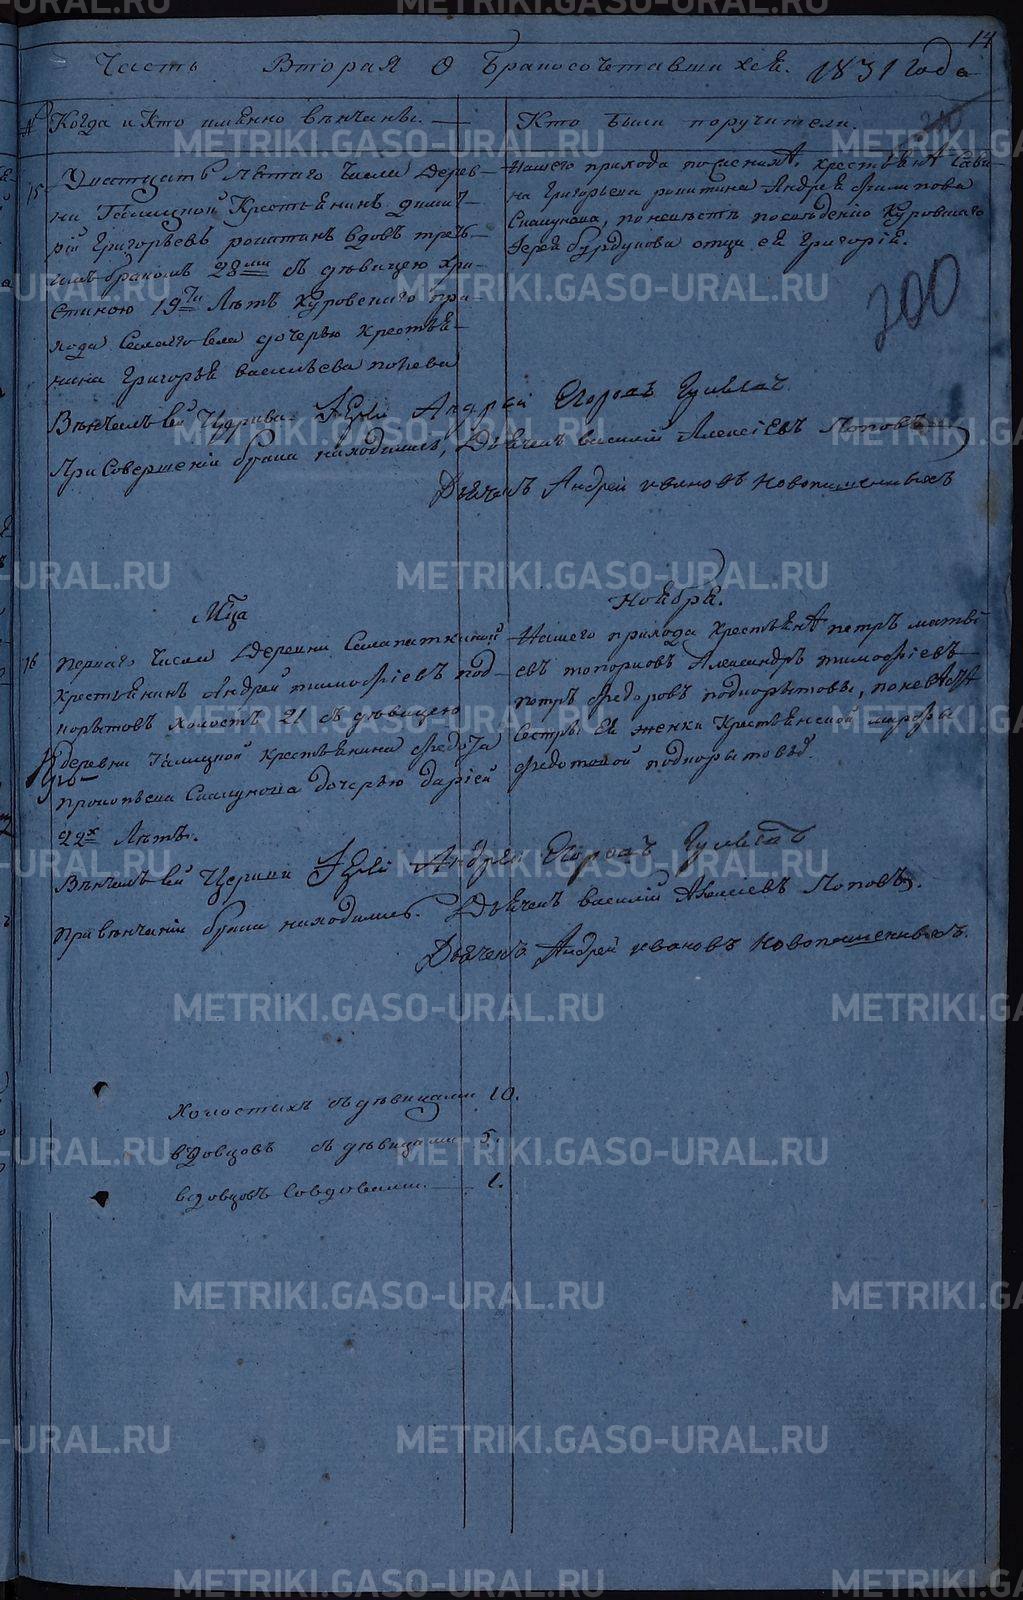 14
Часть Вторая О Бракосочетавшихся. 1831 года
№ Когда и Кто имянно венчаны.
Кто были поручители.
200
15 Дватцать пятаго Числа Дерев-
ни Галицкой Крестьянинъ Димит-
рій Григорьевъ вдовъ треть-
имъ бракомъ 28ми съ девицею Хри-
стиною 19ти Летъ Куровскаго при-
хода села дочерью Крестья-
нина Григорья васильева попова
Нашего прихода крестьяня Сави-
на Григорьева Андрей Филипова
Скакунова, по невесте
отца ея Григорій.
Венчалъ сей Церкви Іерей Андрей Егоровъ
При Совершеніи брака находились, Дьячекъ василій Алексіевъ Поповъ
Дьячекъ Андрей ивановъ Новопашенныхъ
Мца Ноября.
16 перваго Числа Деревни
Крестьянинъ Андрей тимофіевъ под-
корытовъ холостъ 21 съ девицею
деревни Галицкой крестьянина федота
прокопьева Скакунова дочерью даріей
22х Летъ.
Нашего прихода Крестьяня петръ матві-
евъ топорковъ Александръ тимофіевъ
петръ федоровъ подкорытовы, по невесте
сестры ея женки Крестьянской марфы
федотовой подкорытовой
Венчалъ сей Церкви Іерей Андрей Егоровъ
При венчаніи брака находились. Дьячекъ василій Алексіевъ Поповъ.
Дьячекъ Андрей ивановъ Новопашенныхъ.
Холостихъ съ девицами 10.
вдовцовъ съ девицами 5.
вдовцовъ совдовами. 1.
METRIKI.GASO-URAL.RU